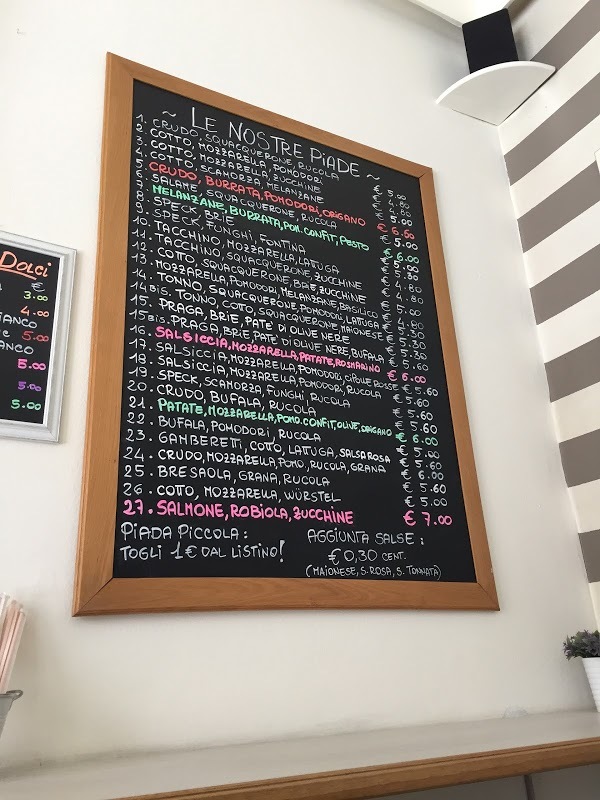 ~ LE NOSTRE PIADE ~
1. CRUDO, SQUACQUERONE, RUCOLA € 5.00
2. COTTO, MOZZARELLA, POMODORI € 4.80
3. COTTO, MOZZARELLA, ZUCCHINE € 4.80
4. COTTO, SCAMORZA, MELANZANE € 5.00
5. CRUDO, BURRATA, POMODORI, ORIGANO € 6.50
6. SALAME, SQUACQUERONE, RUCOLA € 5.00
7. MELANZANE, BURRATA, POM. CONFIT, PESTO € 6.00
8. SPECK, BRIE
9. SPECK, FUNGHI, FONTINA
10. TACCHINO, MOZZARELLA, LATTUGA
11. TACCHINO, SQUACQUERONE, ZUCCHINE
12. COTTO, SQUACQUERONE, BRIE, ZUCCHINE
13. MOZZARELLA, POMODORI, MELANZANE, BASILICO
14. TONNO, SQUACQUERONE, POMODORI, LATTUGA
14 BIS. TONNO, COTTO, SQUACQUERONE, MAIONESE
15. PRAGA, BRIE, PATE' DI OLIVE NERE
15 BIS. PRAGA, BRIE, PATE' DI OLIVE NERE, BUFALA
16. SALSICCIA, MOZZARELLA, PATATE, ROSMARINO € 6.00
17. SALSICCIA, MOZZARELLA, POMODORI, CIPOLLE ROSSE € 5.60
18. SALSICCIA, MOZZARELLA, POMODORI, RUCOLA € 5.60
19. SPECK, SCAMORZA, FUNGHI, RUCOLA € 5.60
20. CRUDO, BUFALA, RUCOLA € 5.60
21. PATATE, MOZZARELLA, POMO. CONFIT, OLIVE, ORIGANO € 6.00
22. BUFALA, POMODORI, RUCOLA € 5.60
23. GAMBERETTI, COTTO, LATTUGA, SALSA ROSA € 5.60
24. CRUDO, MOZZARELLA, POMO, RUCOLA, GRANA € 5.60
25. BRESAOLA, GRANA, RUCOLA € 5.60
26. COTTO, MOZZARELLA, WÜRSTEL € 5.60
27. SALMONE, ROBIOLA, ZUCCHINE € 7.00
PIADA PICCOLA:
TOGLI 1€ DAL LISTINO!
AGGIUNTA SALSE:
€ 0,30 CENT.
(MAIONESE, S. ROSA, S. TONNATA)
DOLCI
€
3.00
4.00
5.00
5.00
5.00
5.00